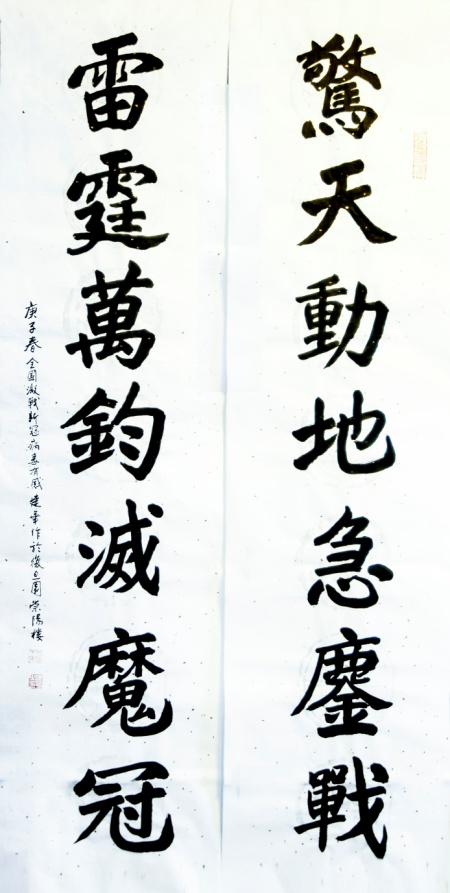 驚天動地急鏖戰
雷霆萬鈞滅魔冠
庚子春全國激戰新冠病毒有感建華作於復旦園榮陽樓